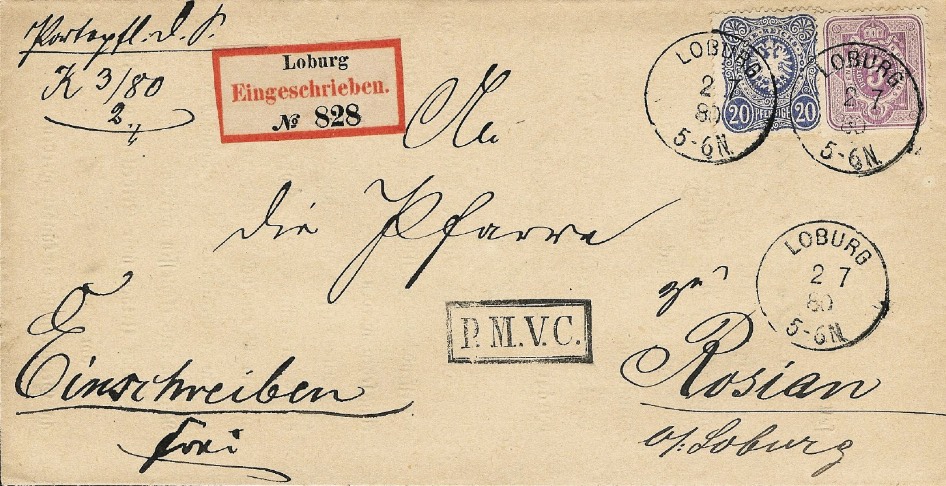 Portopfl. d. S.
K 3/80
2.
Loburg
Eingeschrieben.
№ 828
An
die Pfarre
zu
Rosian
a/. Loburg
Einschreiben
frei
P. M. V. C.
LOBURG
2 7
80
5-6N.
20 PFENNIGE 20
LOBURG
2 7
80
5-6N.
5
LOBURG
2 7
80
5-6N